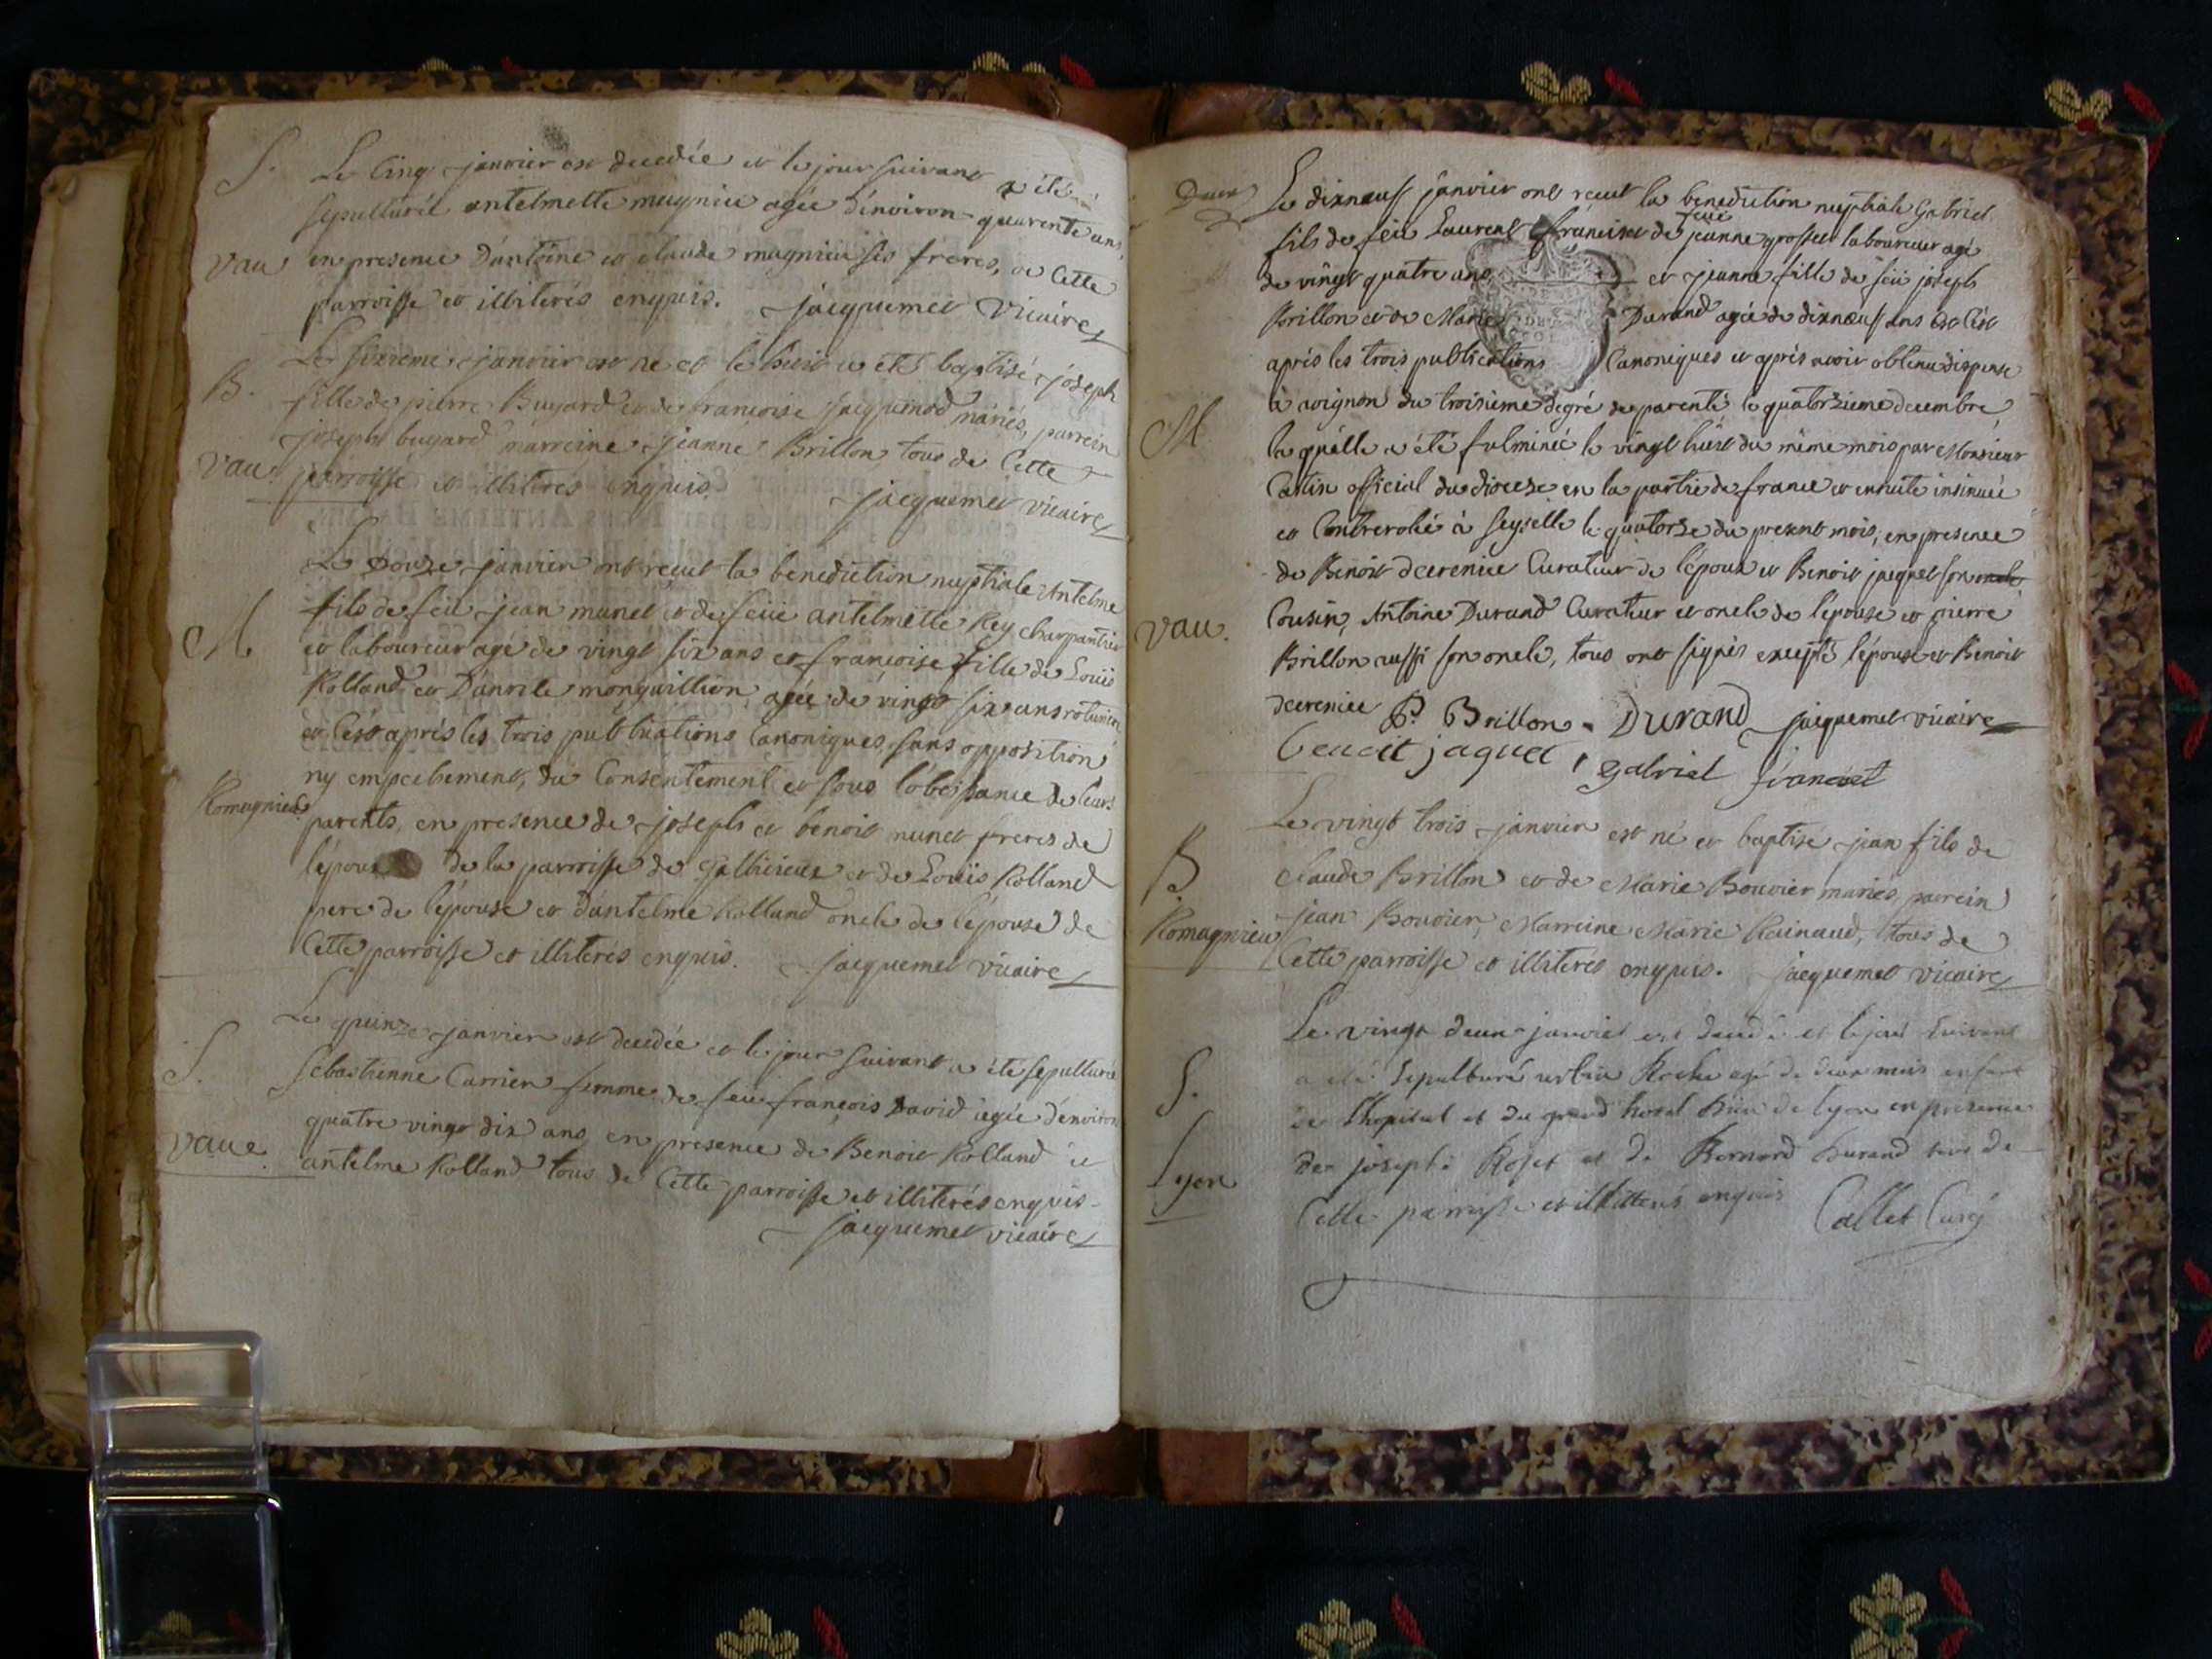 S. Le cinq janvier est decedée et le jour suivant a été
sepulturée antelmette mugnier agée d'environ quarente ans,
Vau en presence D'antoine et claude mugnier ses freres, de Cette
parroisse et illiterés enquis. jacquemet Vicaire
Le sixieme janvier est né et le huit a été baptisé joseph
B. fille de pierre Bugard et de francoise jacquemod mariés, parrein
joseph bugard marreine jeanne Brillon tous de Cette
Vau. parroisse et illiterés enquis. jacquemet vicaire
Le Douze janvier ont recut la benediction nuptiale Antelme
M fils de feü jean munet et de feüe antelmette Rey charpantier
et laboureur agé de vingt six ans et francoise fille de Louis
Rolland et D'anvile monguillion, agée de vingt six ans
et c'est aprés les trois publications Canoniques, sans opposition
ny empechement, du Consentement et sous l'obeissance de leurs
Romagnieu parents, en presence de joseph et benoit munet freres de
l'epoux de la parroisse de et de Louis Rolland
pere de l'epouse et d'antelme Rolland oncle de l'epouse de
Cette parroisse et illiterés enquis. jacquemet vicaire
Le quinze janvier est decedée et le jour suivant a été sepulturée
S. sebastienne Carrier femme de feu françois David agée d'environ
quatre vingt dix ans, en presence de Benoit Rolland et
Vaue. antelme Rolland tous de Cette parroisse et illiterés enquis.
jacquemet vicaire
Le dixneuf janvier ont recut la benediction nuptiale Gabriel
feüe
fils de feü Laurent francoet de jeanne grosset laboureur agé
de vingt quatre ans et jeanne fille de feü joseph
Brillon et de Marie Durand agée de dixneuf ans et c'est
aprés les trois publications Canoniques et aprés avoir obtenu dispense
M à avignon du troisieme degré de parenté le quatorzieme decembre
la quelle a été fulminée le vingt huit du même mois par Monsieur
official du diocese en la partie de france et ensuite insinuée
et Controrolée à seyselle le quatorze du present mois, en presence
de Benoit decrenice Curateur de l'epoux et Benoit jaquet son oncle
Vau. Cousin, Antoine Durand Curateur et oncle de l'epouse et pierre
Brillon aussi son oncle, tous ont signés excepté l'epouse et Benoit
decrenice P. Brillon. DURAND jacquemet vicaire
benoit jaquet, gabriel francoet
Le vingt trois janvier est né et baptisé jean fils de
B claude Brillon et de Marie Bouvier mariés, parrein
Romagnieu jean Bouvier, Marreine Marie Rainaud, tous de
Cette parroisse et illiterés enquis. jacquemet vicaire
Le vingt deux janvier est decedé et le jour suivant
S. a été sepulturé Roche agé de deux mois enfant
de l'hopital et du grand hotel Dieu de lyon en presence
Lyon de joseph Roset et de Bernard Durand tous de
Cette parroisse et illitterés enquis Callet Curé